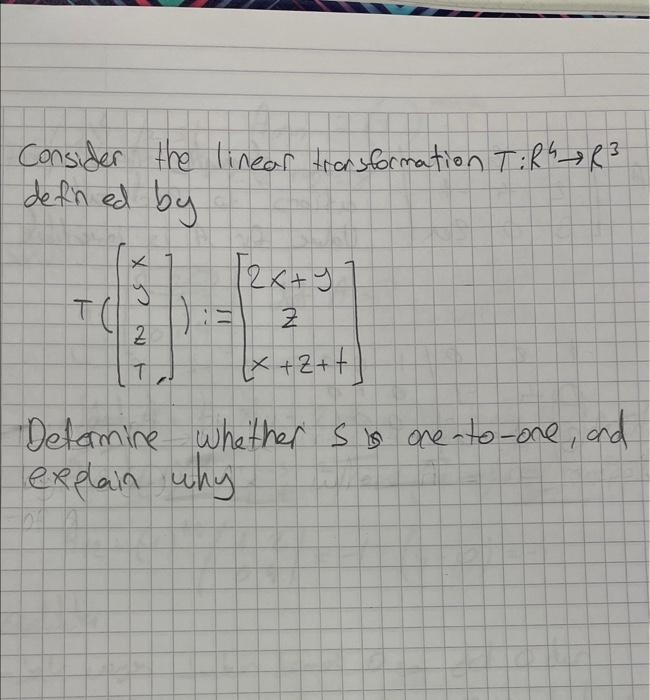 Consider the linear transformation T:R⁴→R³
defined by
T([x y z T]) := [2x+y z x+z+t]
Determine whether S is one-to-one, and
explain why